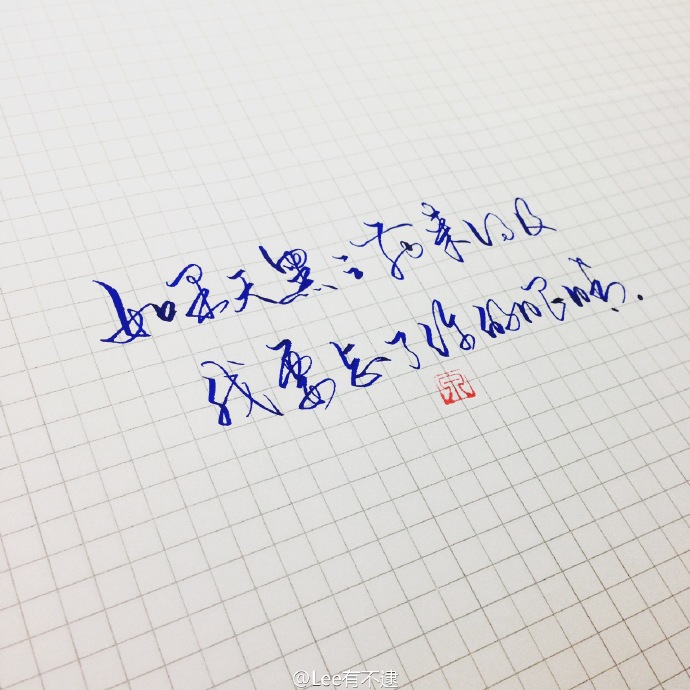 如果天黑之前来得及
我要忘了你的眼睛.
泉
@Lee有不逮